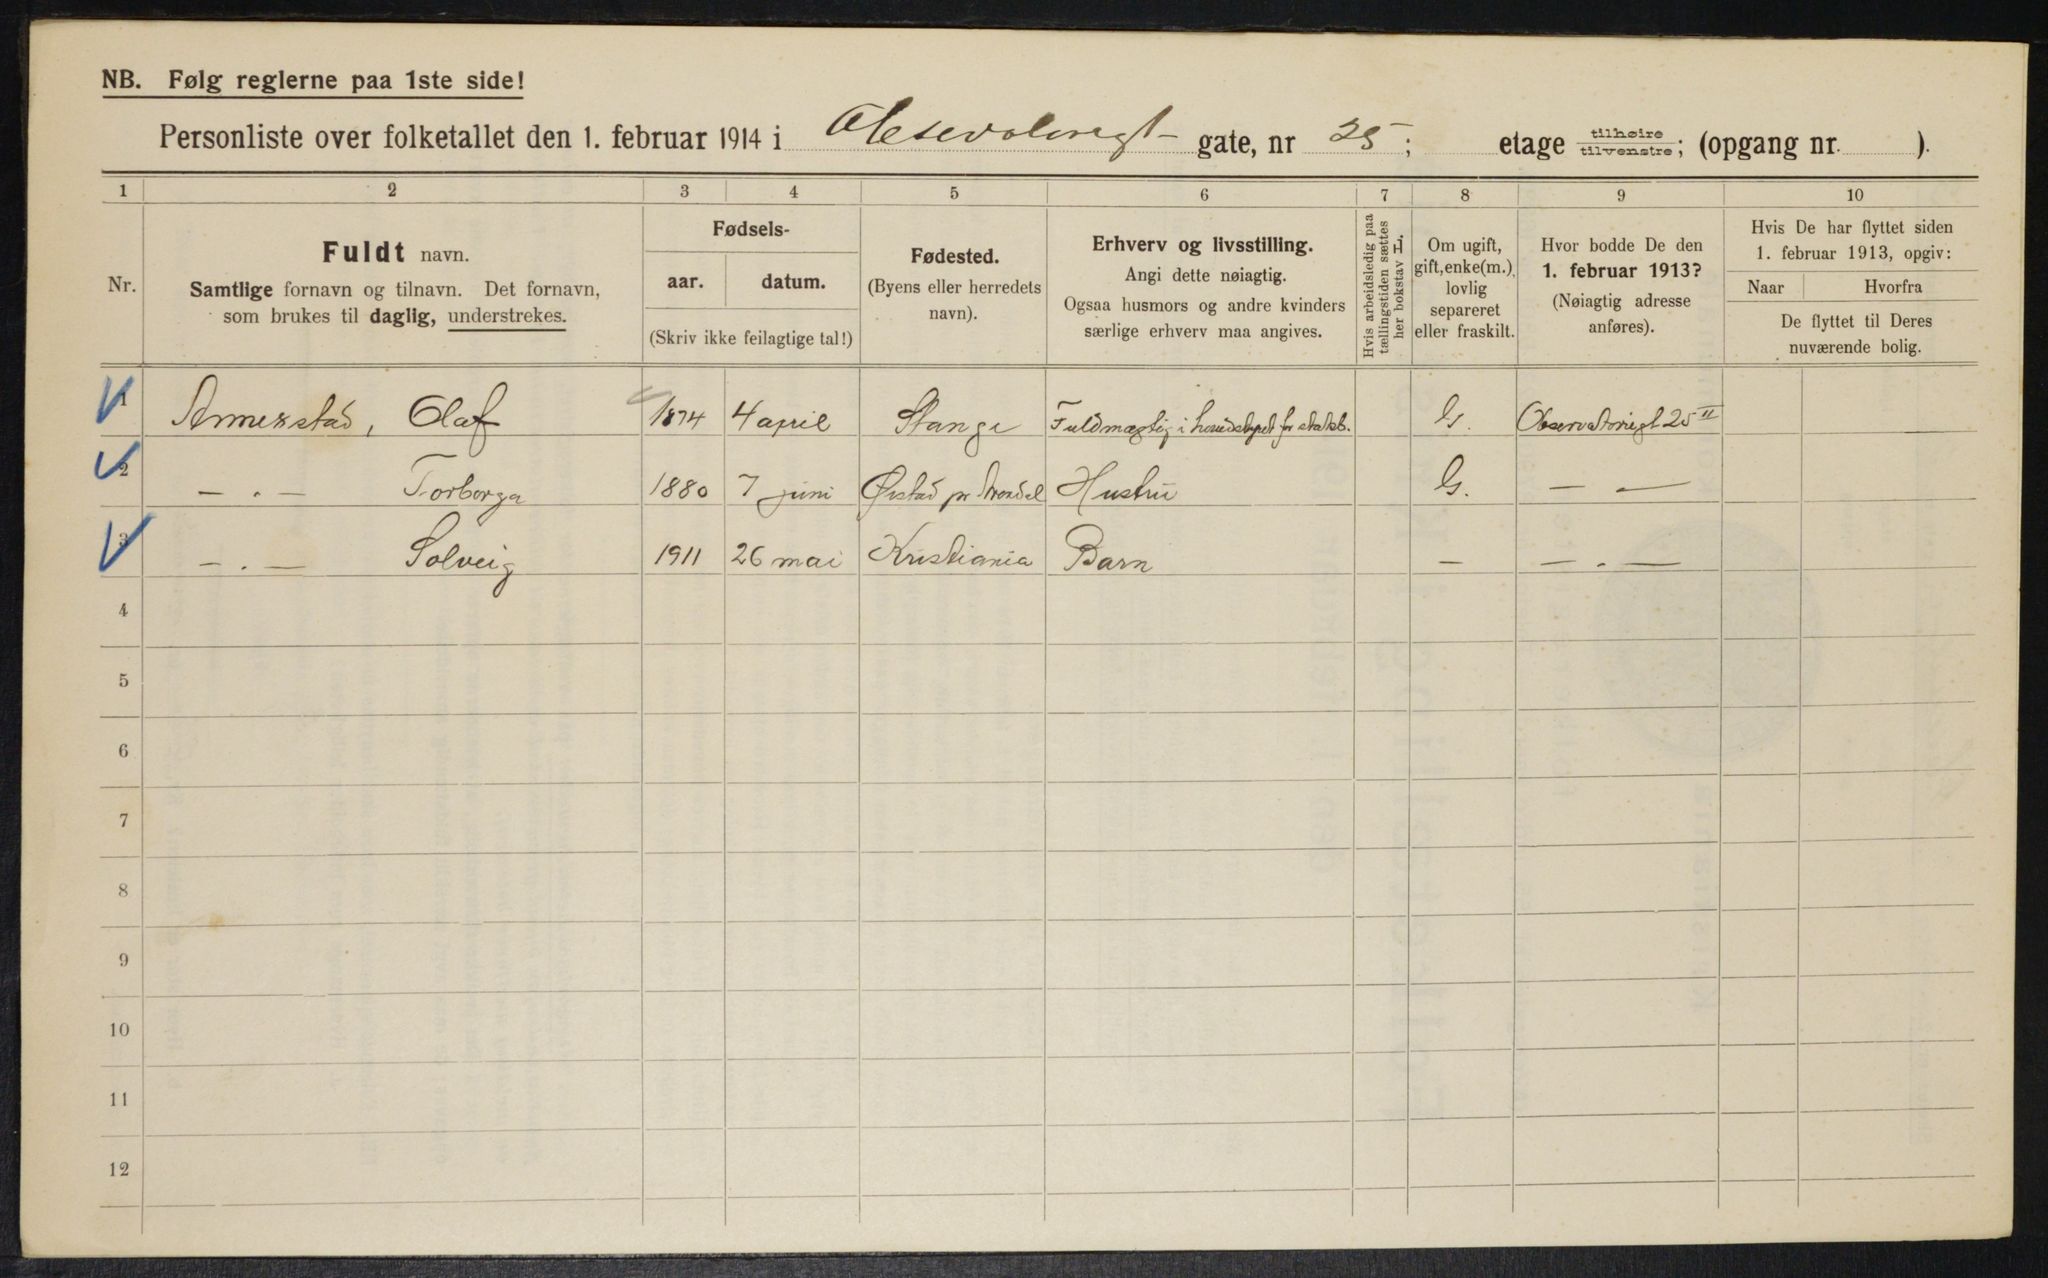 NB. Følg reglerne paa 1ste side!
Personliste over folketallet den 1. februar 1914 i Observatoriegt gate, nr 25; etage tilhøire/tilvenstre; (opgang nr. ).
1 2 3 4 5 6 7 8 9 10
Nr.
Fuldt navn.
Samtlige fornavn og tilnavn. Det fornavn,
som brukes til daglig, understrekes.
Fødsels-
aar. datum.
(Skriv ikke feilagtige tal!)
Fødested.
(Byens eller herredets
navn).
Erhverv og livsstilling.
Angi dette nøiagtig.
Ogsaa husmors og andre kvinders
særlige erhverv maa angives.
Hvis arbeidsledig paa
tællingstiden sættes
her bokstav L.
Om ugift,
gift, enke(m.),
lovlig
separeret
eller fraskilt.
Hvor bodde De den
1. februar 1913?
(Nøiagtig adresse
anføres).
Hvis De har flyttet siden
1. februar 1913, opgiv:
Naar Hvorfra
De flyttet til Deres
nuværende bolig.
1 Annexstad, Olaf 1874 4 april Stange Fuldmægtig i hovedstyret for statsb. G. Observatoriegt 25 II
2 — . — Torborga 1880 7 juni Øistad pr Arendal Hustru G. — —
3 — . — Solveig 1911 26 mai Kristiania Barn — — . —
4
5
6
7
8
9
10
11
12